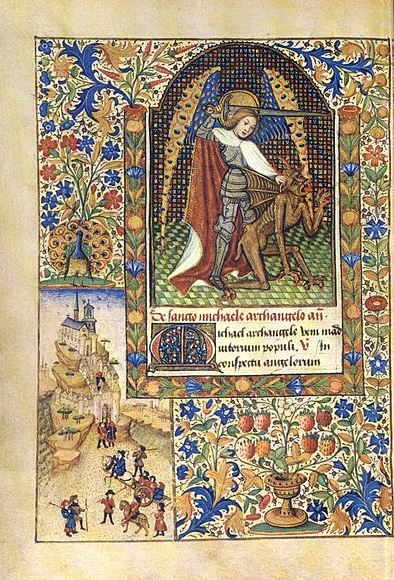 De sancto michaele archangelo añ.
Michael archangele veni in adi
utorium populi. V̄ In
conspectu angelorum